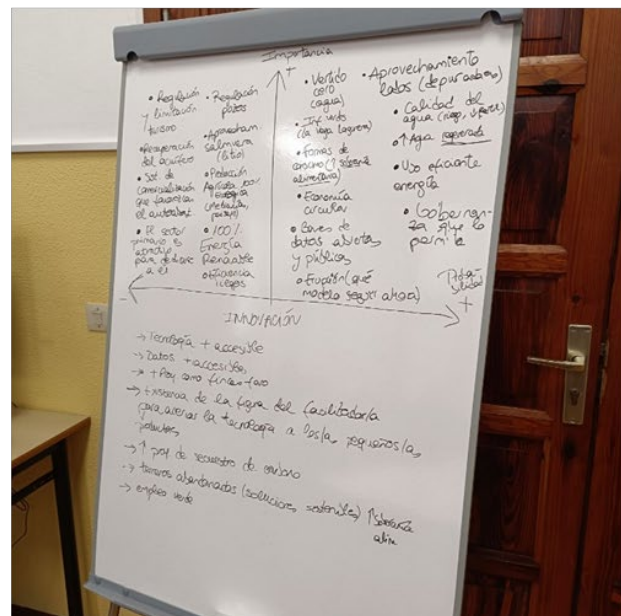 Importancia
+
• Regulación
y limitación
turismo
• Recuperación
del acuífero
• Sist. de
comercialización
que favorezca
el autoabast.
• El sector
primario es
atractivo
para dedicarse
a él
• Regulación
pozos
• Aprovecham.
salmuera
(litio)
• Producción
Agrícola 100%
Ecológica
paisaje)
• 100%
Energía
Renovable
• Eficiencia
riegos
• Vertido
cero
(agua)
• Inf. verde
(la vega lagunera)
• Formas de
consumo (↑ soberanía
alimentaria)
• Economía
circular
• Bases de
datos abiertas
y públicas
• Erupción (qué
modelo seguir ahora)
• Aprovechamiento
lodos (depuradora)
• Calidad del
agua (riego,
↑ Agua regenerada
• Uso eficiante
energía
• Goberna-
za que lo
permite
Proba-
bilidad
+
-
INNOVACIÓN
→ Tecnología + accesible
→ Datos + accesibles
→ + Roy como finca faro
→ Existencia de la figura del facilitador/a
para acercar la tecnología a los/as pequeños/as
→ ↑ proy de secuestro de carbono
→ terrenos abandonados (soluciones sostenibles) ↑ Soberanía
alim
→ empleo verde